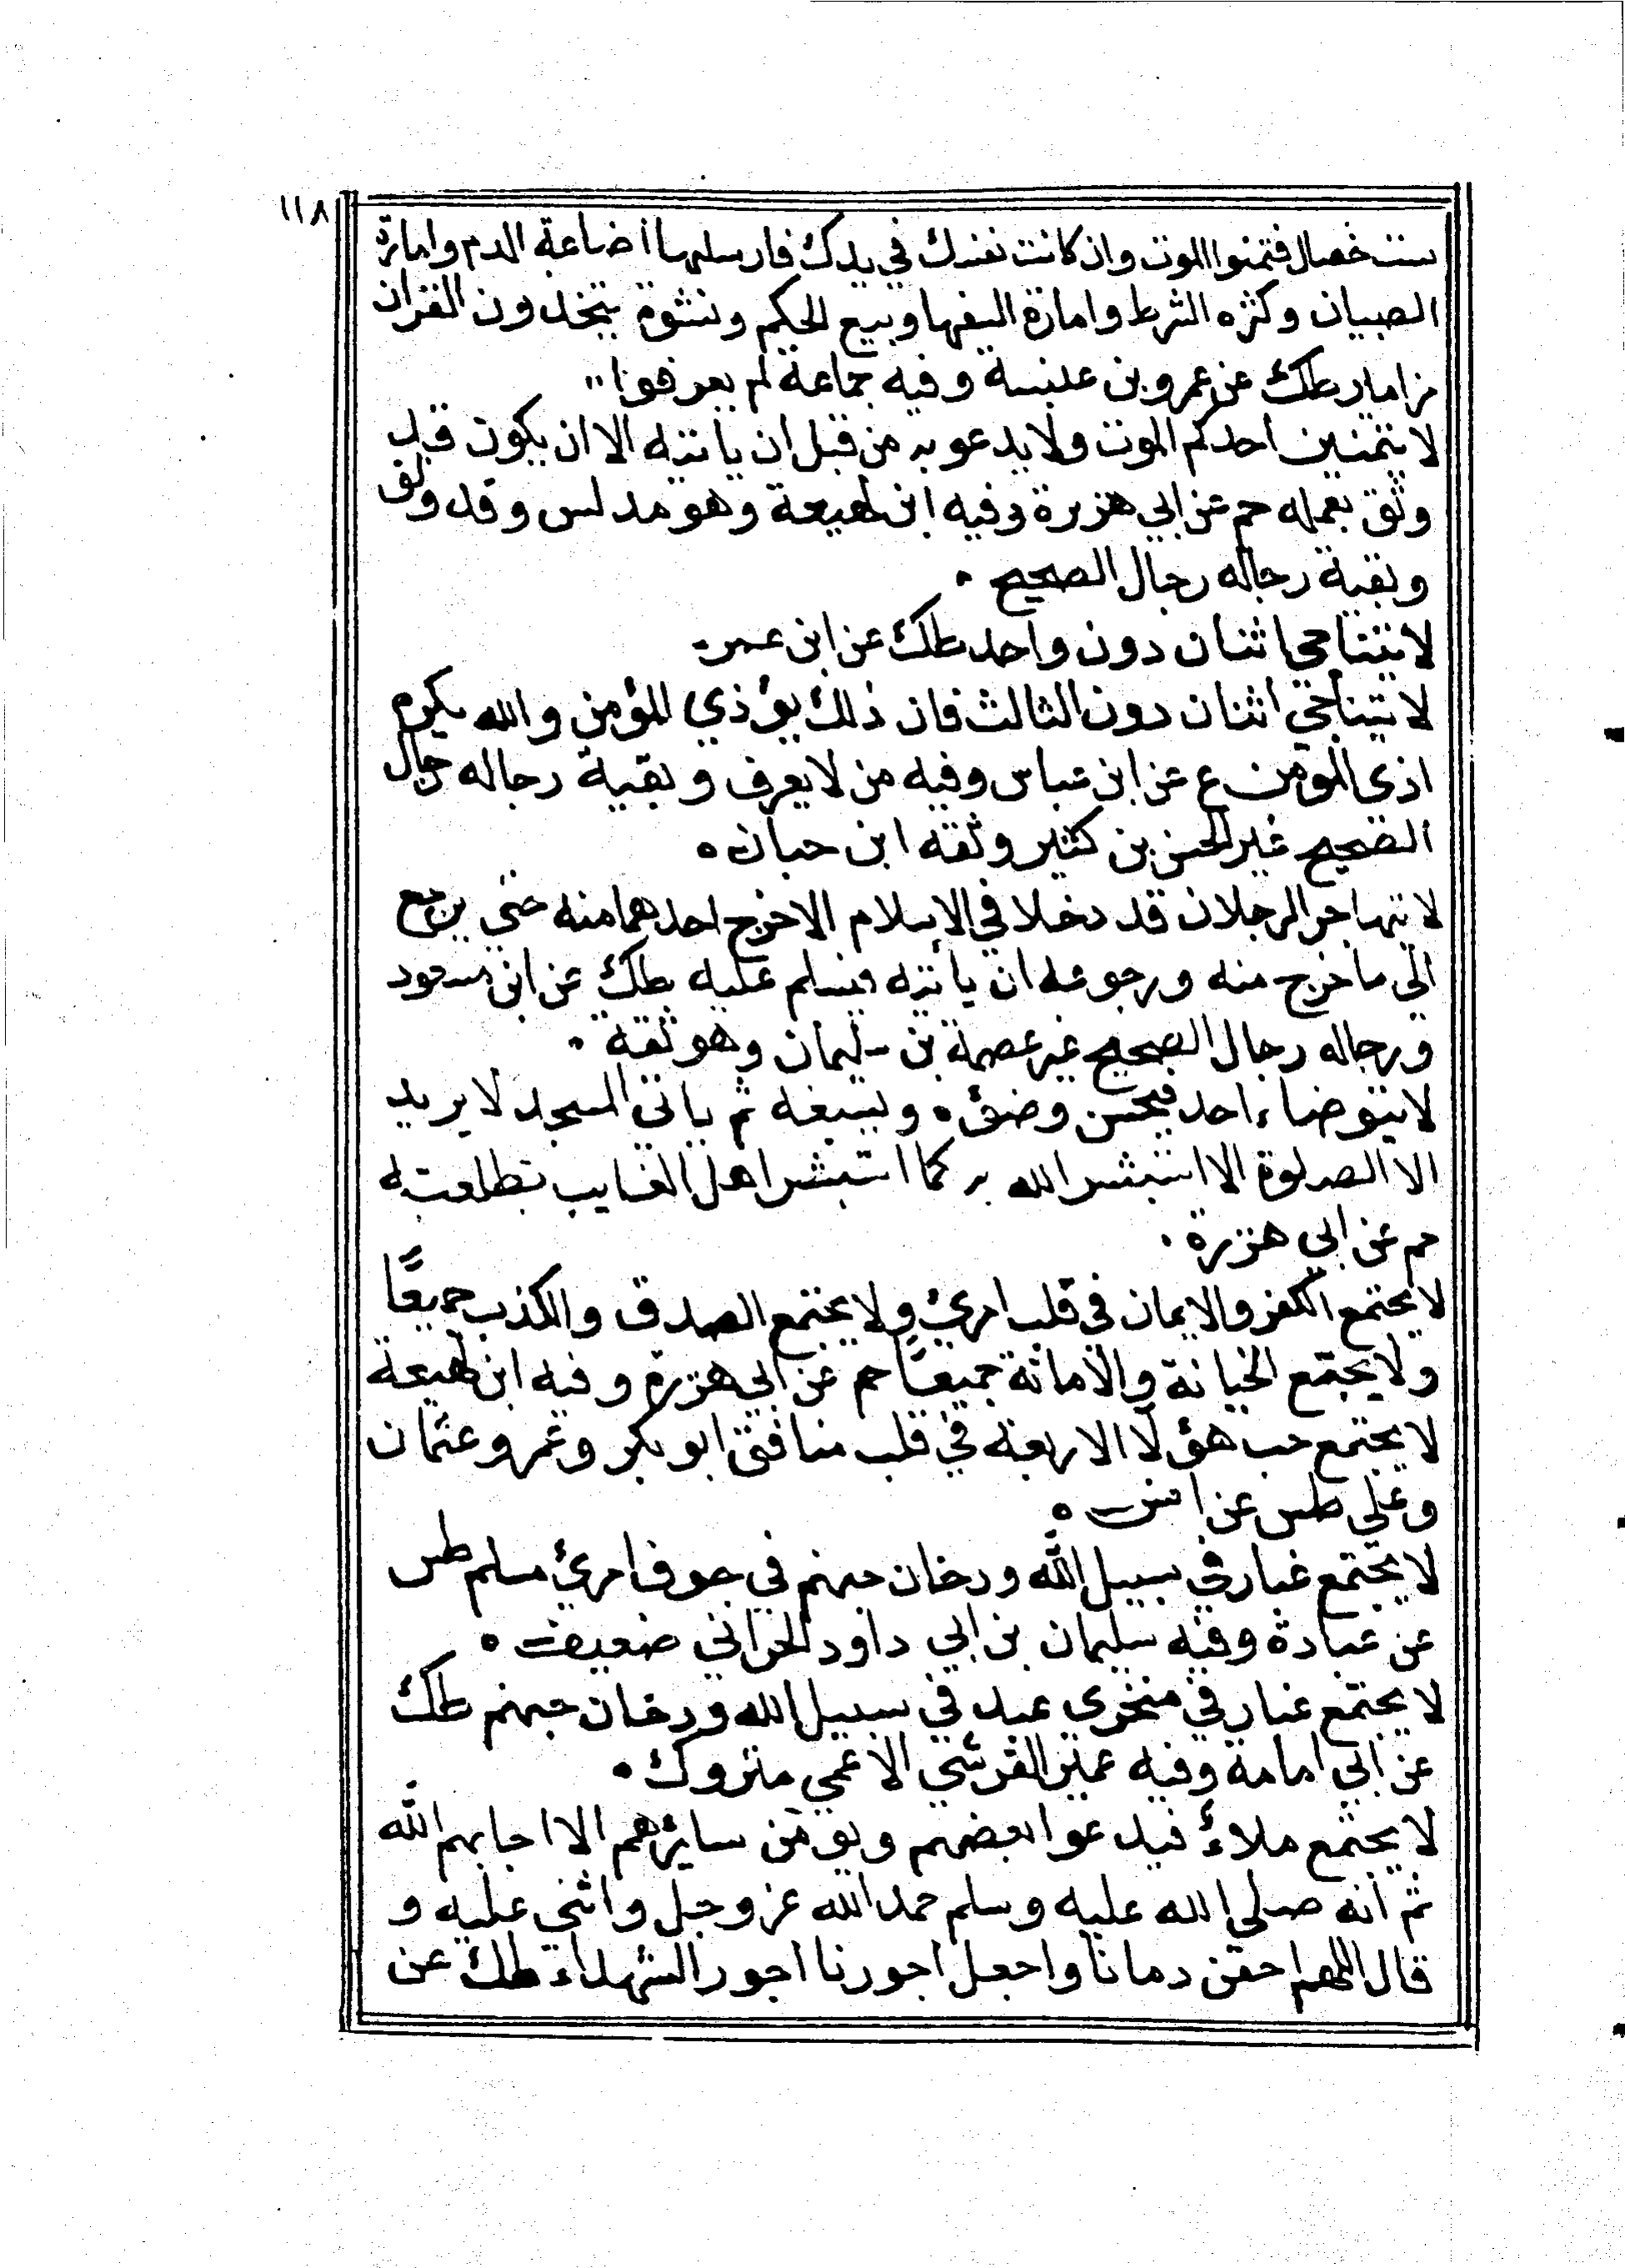 ١١٨
ست خصال فتمنوا الموت وان كانت نفسك في يدك فارسلها اضاعة الدم وامارة
الصبيان وكثره الشرط وامارة السفها وبيع الحكم ونشوة يتخذون القران
مزامار طك عن عمرو بن عنبسة وفيه جماعة لم يعرفوا
لا يتمنين احدكم الموت ولا يدعو به من قبل ان ياتيه الا ان يكون قد
وثق بعمله حم عن ابي هريرة وفيه ابن لهيعة وهو مدلس وقد وثق
وبقية رجاله رجال الصحيح ٠
لا يتناجي اثنان دون واحد طك عن ابن عمر
لا يتناجي اثنان دون الثالث فان ذلك يؤذي المؤمن والله يكره
اذى المومن ع عن ابن عباس وفيه من لا يعرف وبقية رجاله رجال
الصحيح غير الحسن بن كثير وثقه ابن حبان ه
لا يتهاجر الرجلان قد دخلا في الاسلام الا خرج احدهما منه حتى يرجع
الي ما خرج منه ورجوعه ان ياتيه فيسلم عليه طك عن ابن مسعود
ورجاله رجال الصحيح غير عصمة بن سليمان وهو ثقة ٠
لا يتوضاء احد فيحسن وضؤه ويسبغه ثم ياتي المسجد لا يريد
الا الصلوة الا استبشر الله به كما استبشر اهل الغايب بطلعته
حم عن ابي هريرة ٠
لا يجتمع الكفر والايمان في قلب امرئ ولا يجتمع الصدق والكذب جميعًا
ولا يجتمع الخيانة والامانة جميعًا حم عن ابي هريرة وفيه ابن لهيعة
لا يجتمع حب هؤلا الاربعة في قلب منافق ابو بكر وعمر وعثمان
وعلي طس عن انس ه
لا يجتمع غبار في سبيل الله ودخان جهنم في جوف امرئ مسلم طس
عن عبادة وفيه سليمان بن ابي داود الحراني ضعيف ه
لا يجتمع غبار في منخري عبد في سبيل الله ودخان جهنم طك
عن ابي امامة وفيه عمير القرشي الاعمي متروك ٠
لا يجتمع ملاءٌ فيدعوا بعضهم ويؤمن سايرهم الا اجابهم الله
ثم انه صلي الله عليه وسلم حمد الله عز وجل واثني عليه و
قال اللهم احقن دمانا واجعل اجورنا اجور الشهداء طك عن